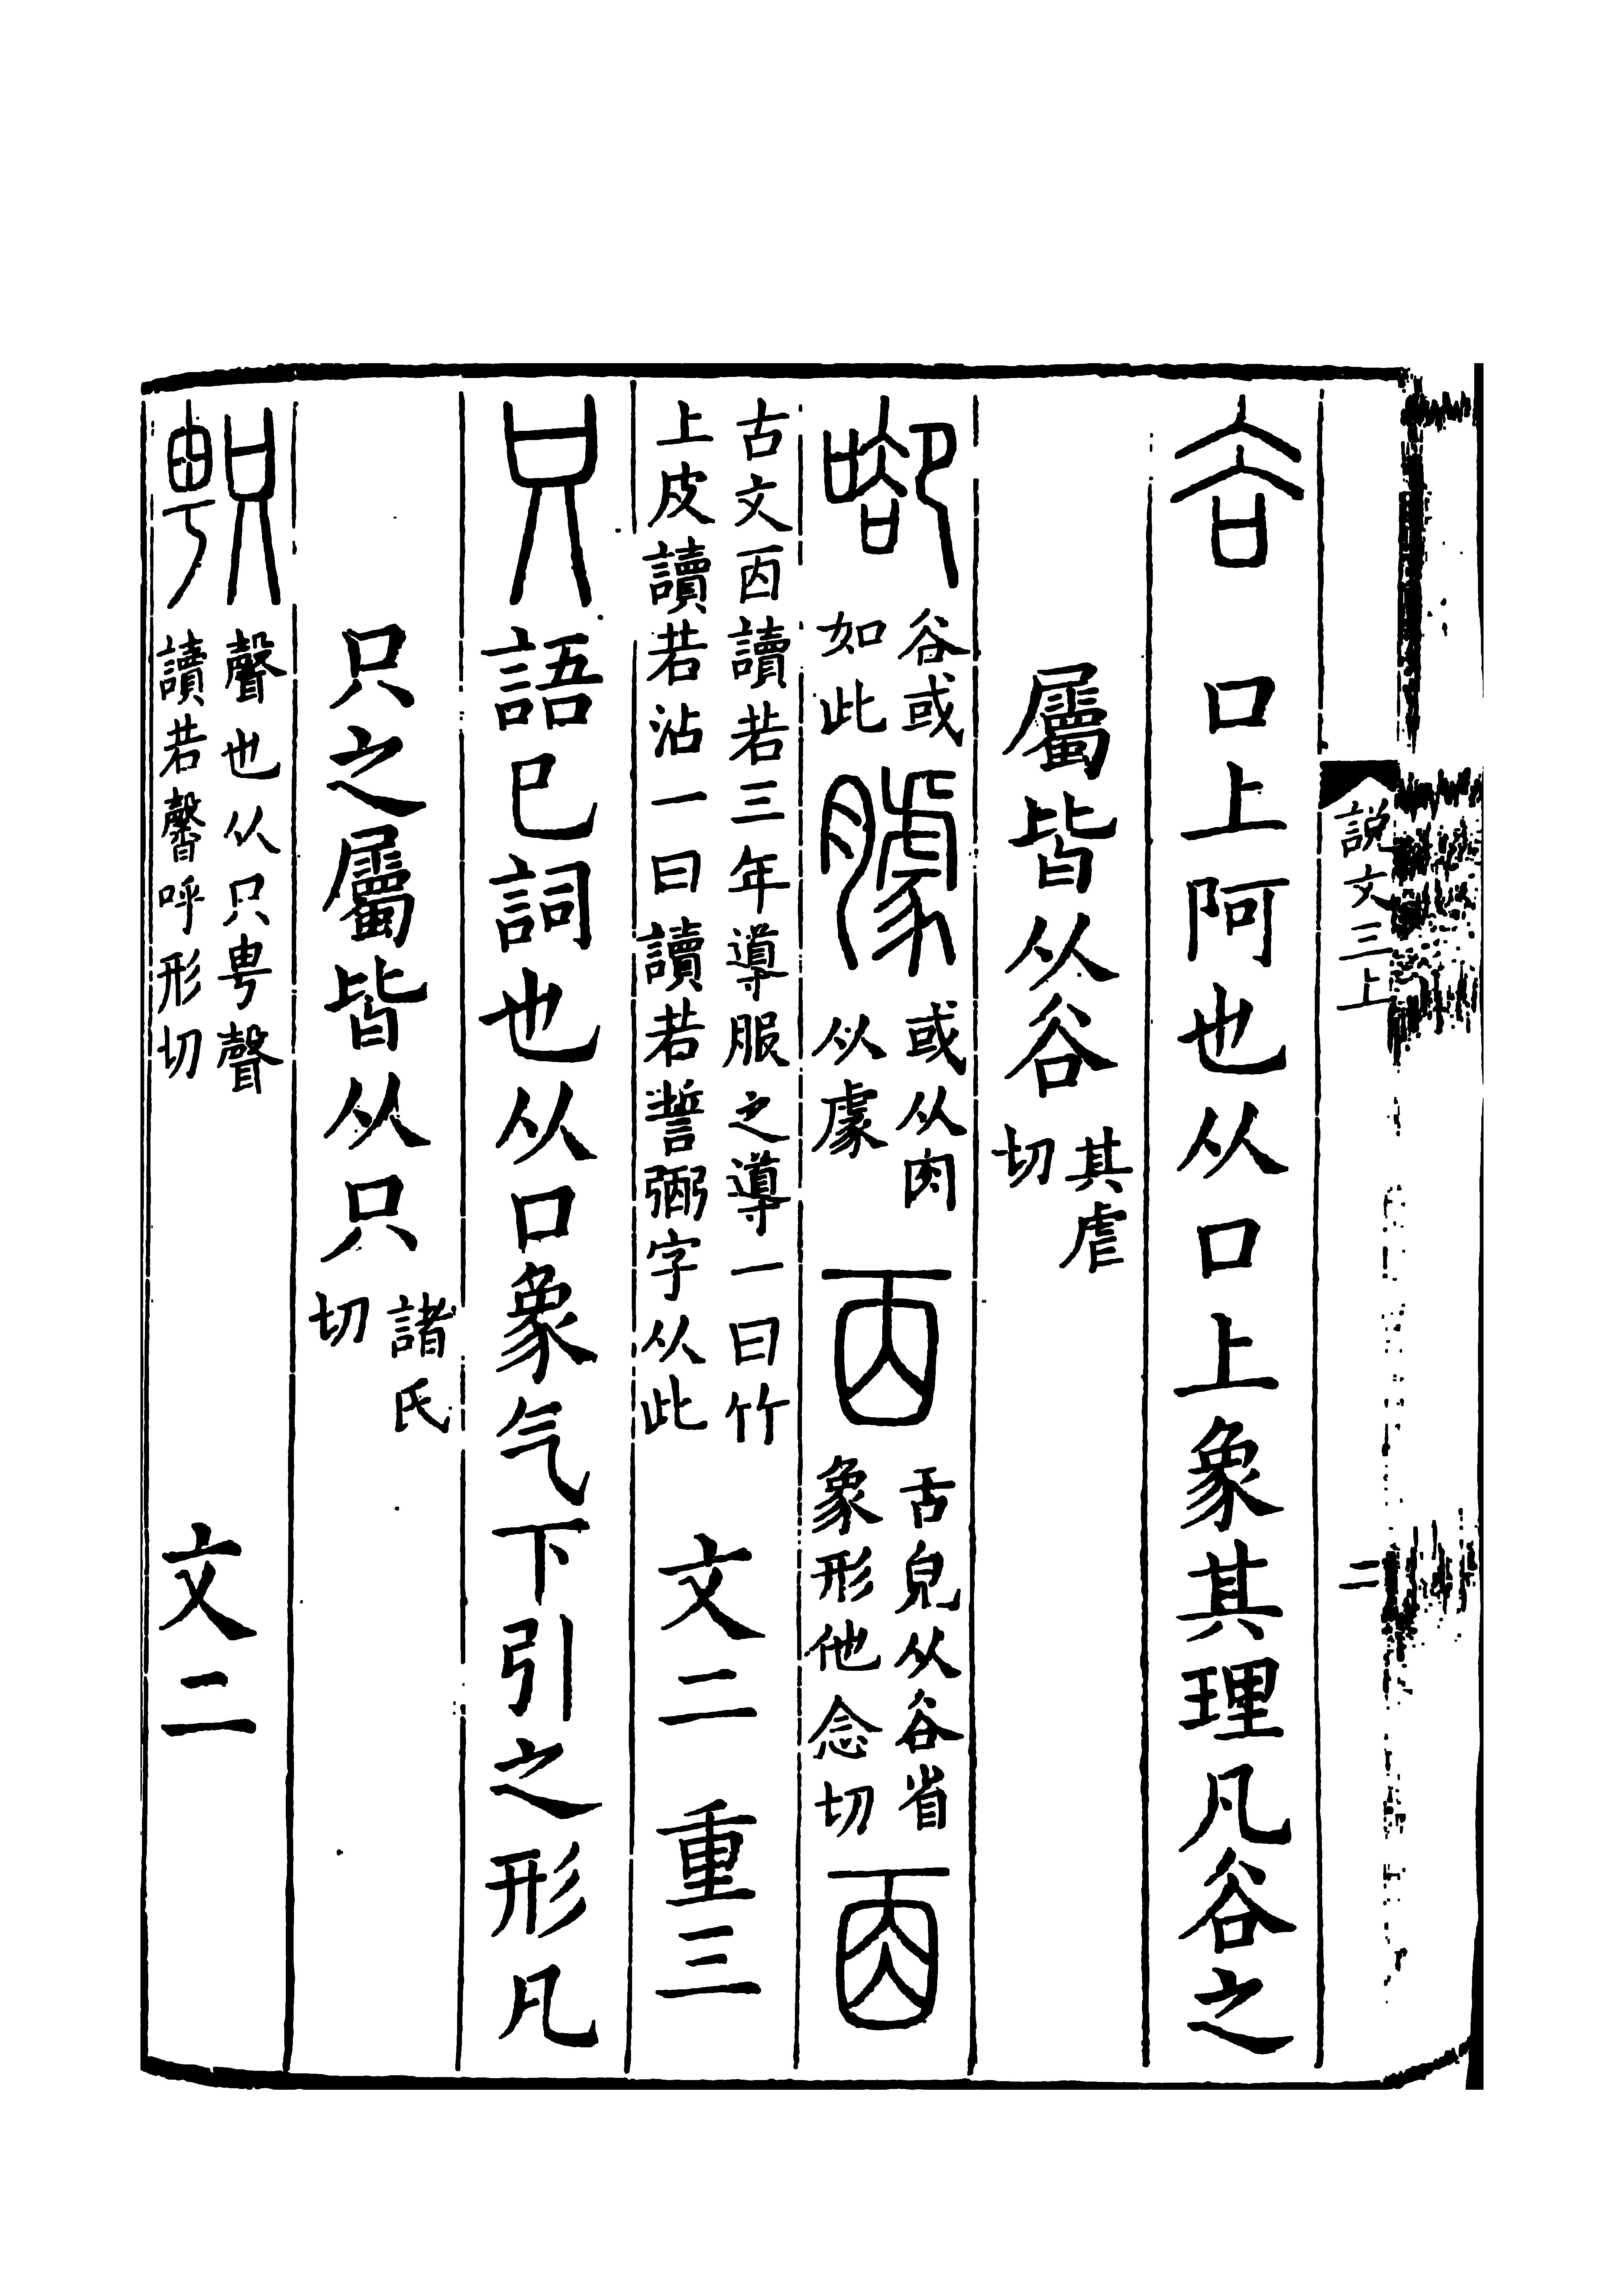 説文三上
二
谷 口上阿也从口上象其理凡谷之
屬皆从谷其虐切
㕁谷或如此臄或从肉从豦㐁舌皃从谷省象形他念切𠀬
古文㐁讀若三年導服之導一曰竹上皮讀若沾一曰讀若誓弼字从此 文二 重三
只語巳詞也从口象气下引之形凡
只之屬皆从只諸氏切
𠷎聲也从只甹聲讀若馨呼形切 文二